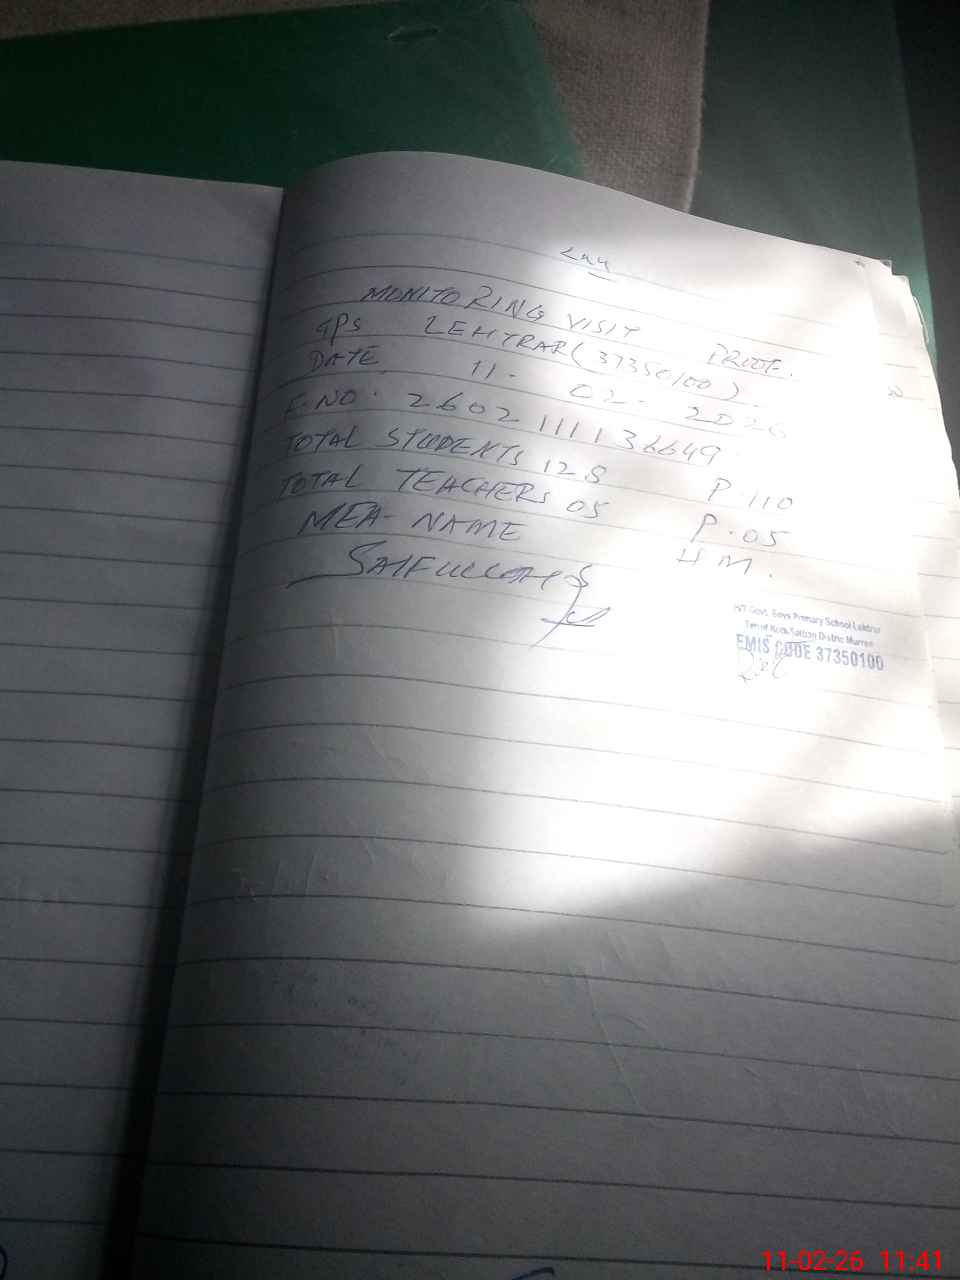 MONITORING VISIT PROOF.
GPS LEHTRAR (37350100)
DATE 11. 02. 2026
F.NO. 26021111136649
TOTAL STUDENTS 128 P.110
TOTAL TEACHERS 05 P.05
MEA-NAME H M.
SAIFULLAH
H/T Govt. Boys Primary School Lehtrar
Tehsil Kotli Sattian District Murree
EMIS CODE 37350100
11-02-26 11:41